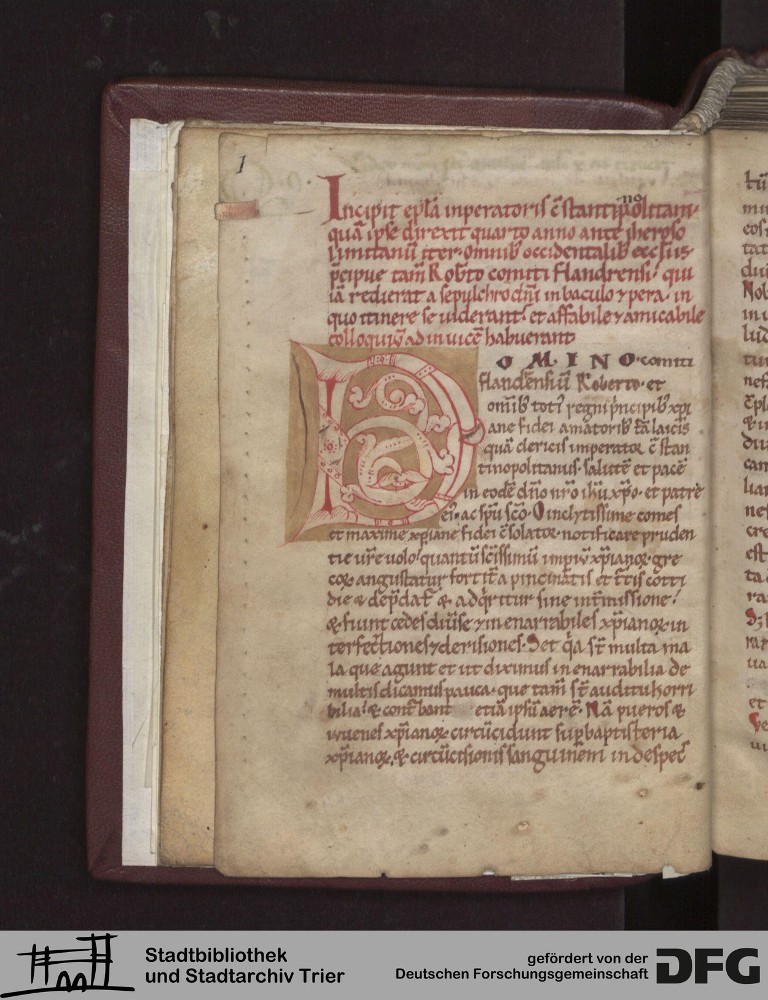 1
Incipit ep̄la inperatoris c̄stantinopolitani
quā ipse direxit quarto anno ante iheroso
limitanū iter· omnib; occidentalib; ęccl̄iis·
p̄cipue tam̄ Rob̄to comiti flandrensi· qui
iā redierat a sepulchro dn̄i in baculo ⁊ pera· in
quo itinere se uiderant· et affabile ⁊ amicabile
colloquiū ad inuicē habuerant
DOMINO· comiti
flandrensiū Roberto· et
om̄ib; toti᷒ regni p̄ncipib; xp̄i
ane fidei amatorib; tā laicis
quā clericis imperator c̄stan
tinopolitanus· salutē et pacē
in eodē dn̄o nr̄o ih̄u xp̄o· et patre
ei᷒· ac sp̄u sc̄o· O inclytissime comes
et maxime xp̄iane fidei c̄solator· notificare pruden
tie ur̄e uolo· quantū sc̄issimū impiū xp̄ianoꝝ gre
coꝝ angustatur fortit̄ a pincinatis et t̄cis cotti
die & dep̄dat̄ & adq̄ritur sine int̄missione·
& fiunt cedes diuse ⁊ inenarrabiles xp̄ianoꝝ in
terfectiones ⁊ derisiones· Set q̄a st̄ multa ma
la que agunt et ut diximus inenarrabilia de
multis dicamus pauca· que tam̄ st̄ auditu horri
bilia· & cont̄bant etiā ipsū aerē· Nā pueros &
iuuenes xp̄ianoꝝ circūcidunt sup̄ baptisteria
xp̄ianoꝝ· & circūcisionis sanguinem in despec̄
Stadtbibliothek
und Stadtarchiv Trier
gefördert von der
Deutschen Forschungsgemeinschaft
DFG